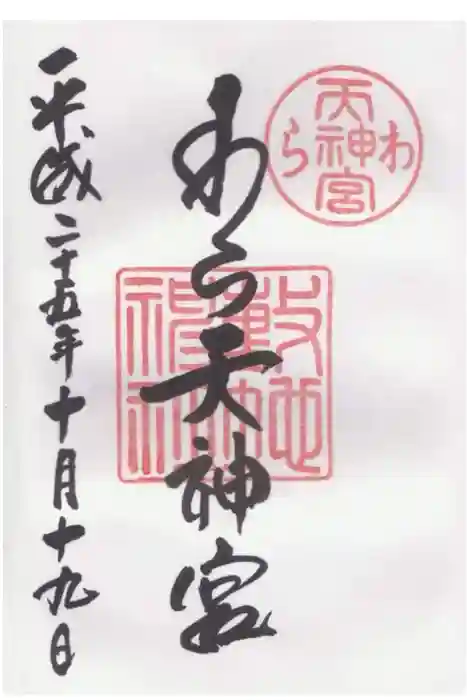 わら天神宮
わら天神宮
敷地
平成二十五年十月十九日